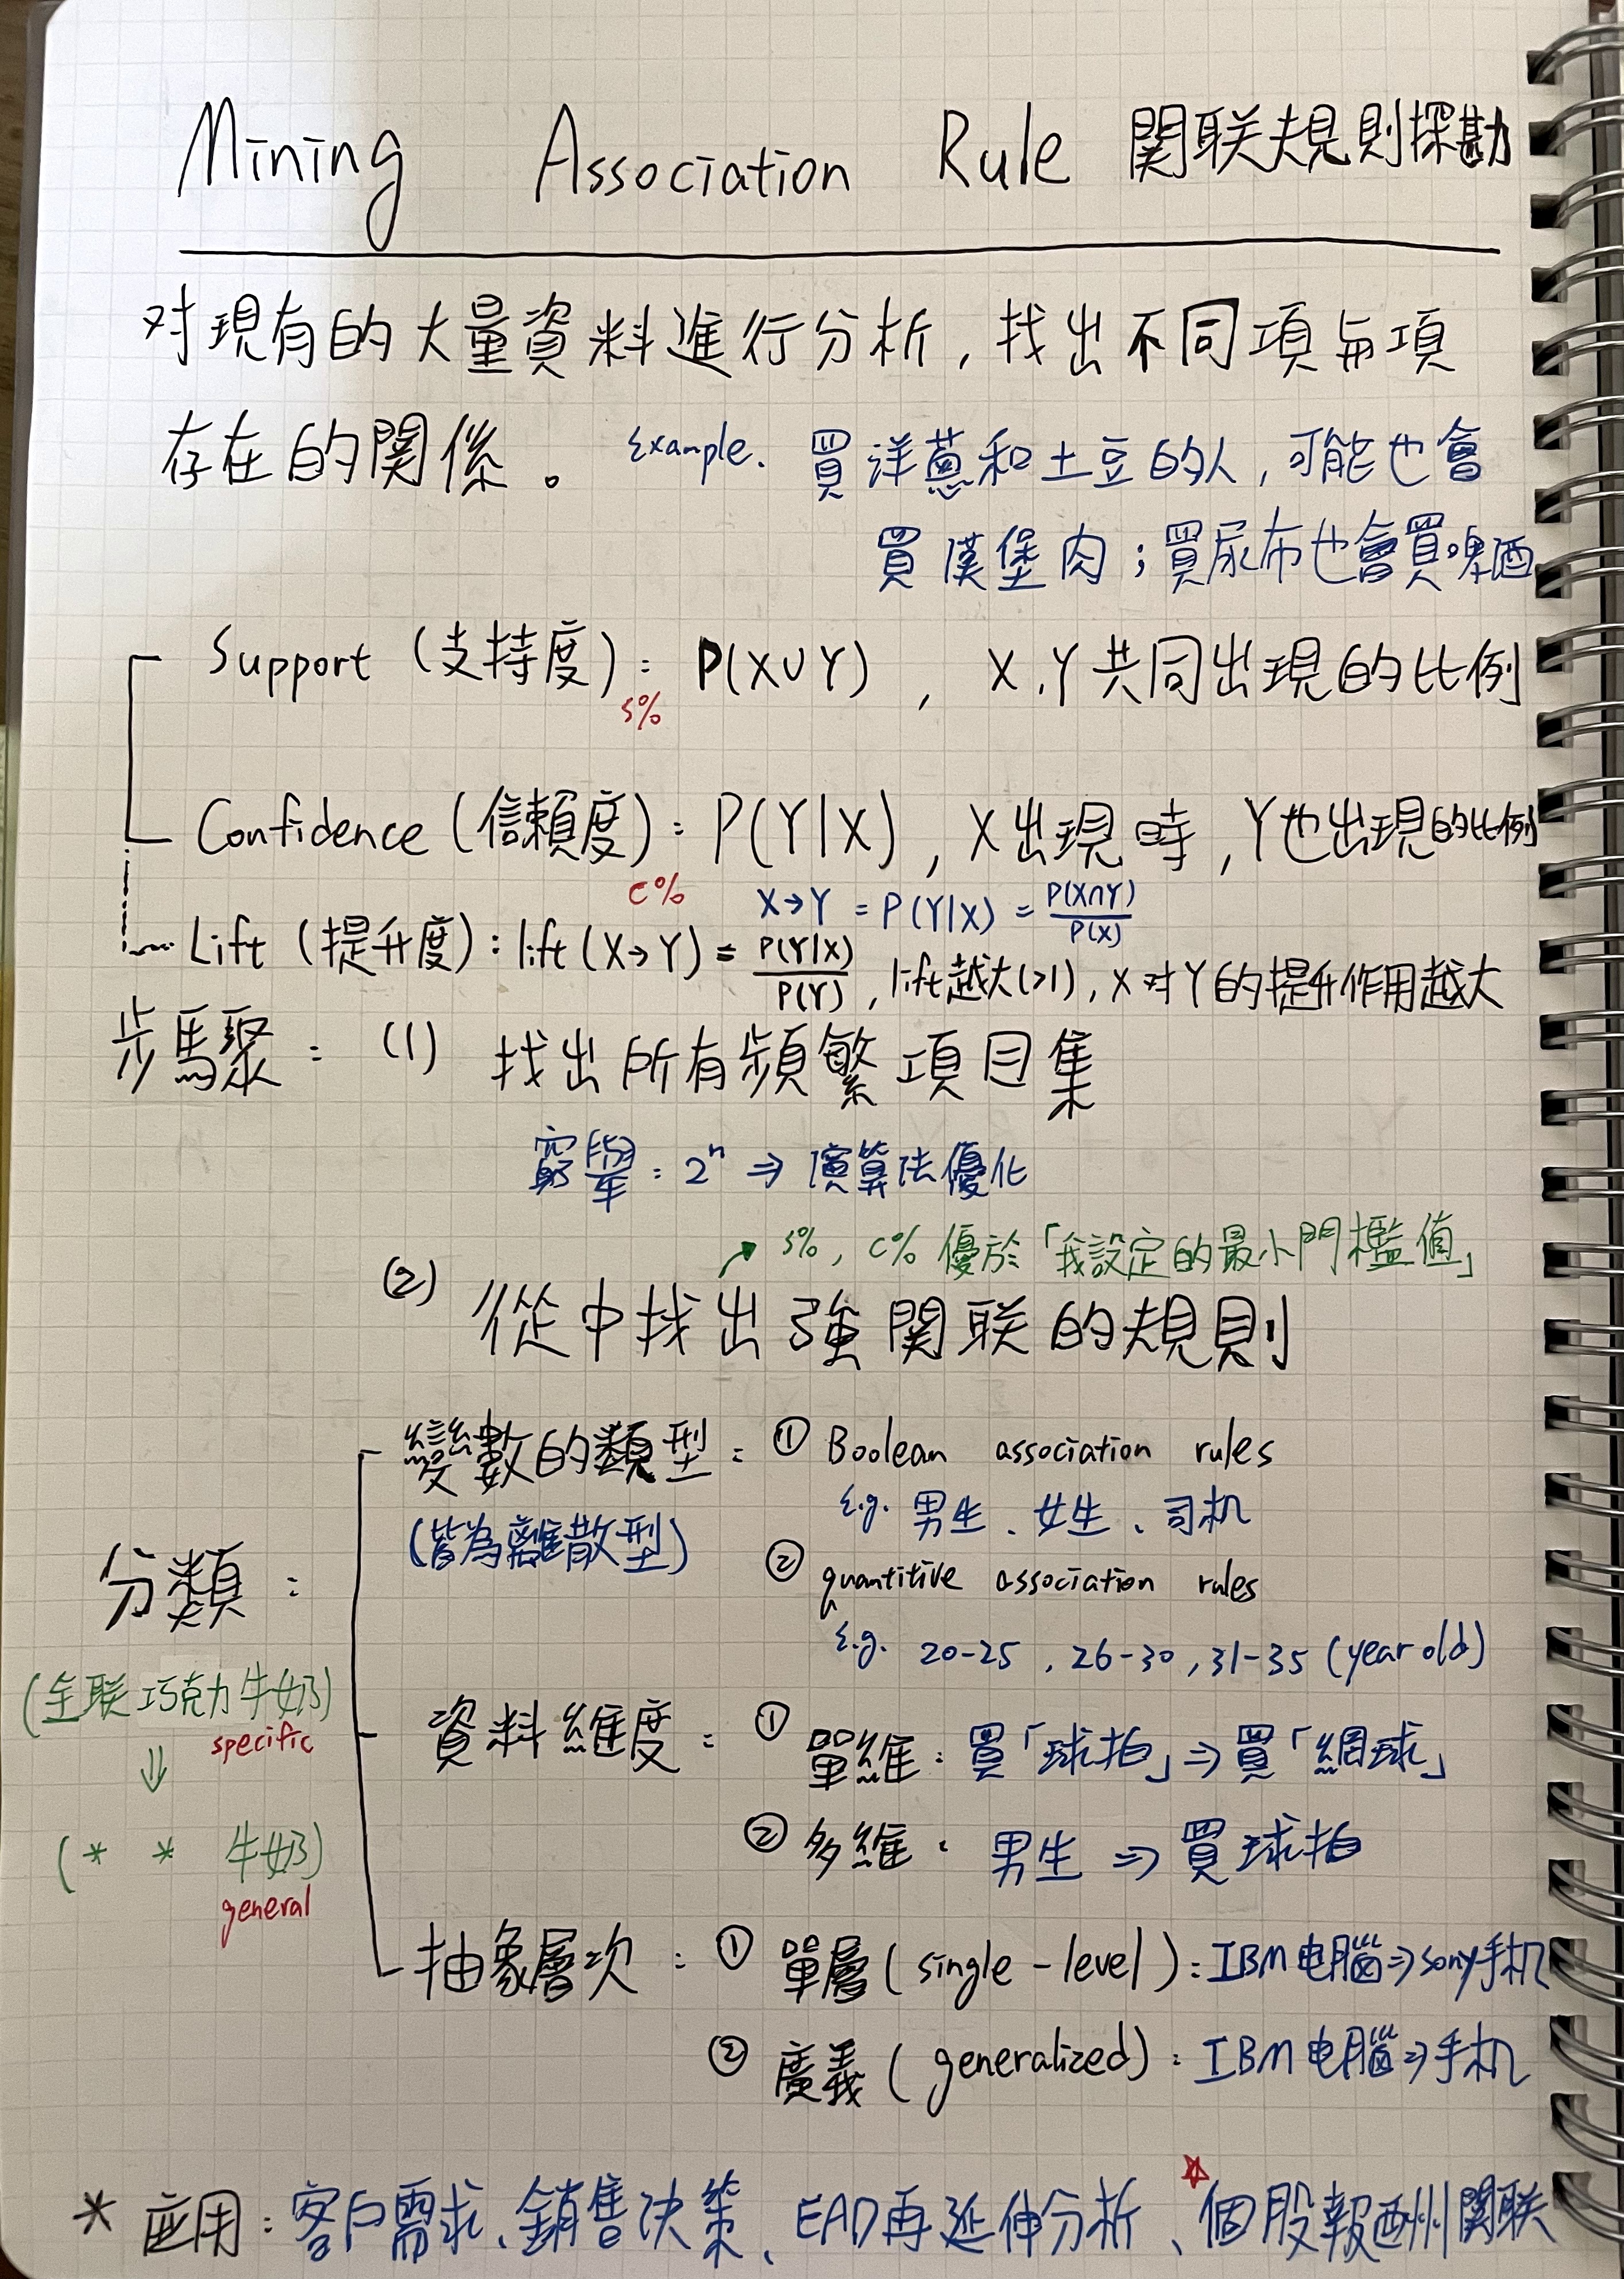 Mining Association Rule 関联規則探勘
对現有的大量資料進行分析,找出不同項与項
存在的関係。 Example. 買洋蔥和土豆的人,可能也會
買漢堡肉;買尿布也會買啤酒
Support (支持度): P(X∪Y) , X,Y共同出現的比例
s%
Confidence (信賴度): P(Y|X), X出現時,Y也出現的比例
c% X→Y = P(Y|X) = P(X∩Y)/P(X)
Lift (提升度): lift(X→Y) = P(Y|X)/P(Y), lift越大(>1), X对Y的提升作用越大
步驟: (1) 找出所有頻繁項目集
窮舉: 2ⁿ ⇒ 演算法優化
↗ s%, c% 優於「我設定的最小門檻值」
(2) 從中找出強関联的規則
分類:
(全联巧克力牛奶)
specific
⇓
(* * 牛奶)
general
變數的類型: ① Boolean association rules
(皆為離散型) E.g. 男生、女生、司机
② quantitive association rules
E.g. 20-25, 26-30, 31-35 (year old)
資料維度: ① 單維: 買「球拍」⇒買「網球」
② 多維: 男生 ⇒ 買球拍
抽象層次: ① 單層(single-level): IBM电腦⇒sony手机
② 廣義(generalized): IBM电腦⇒手机
* 应用: 客户需求、銷售决策、EAD再延伸分析、☆個股報酬関联